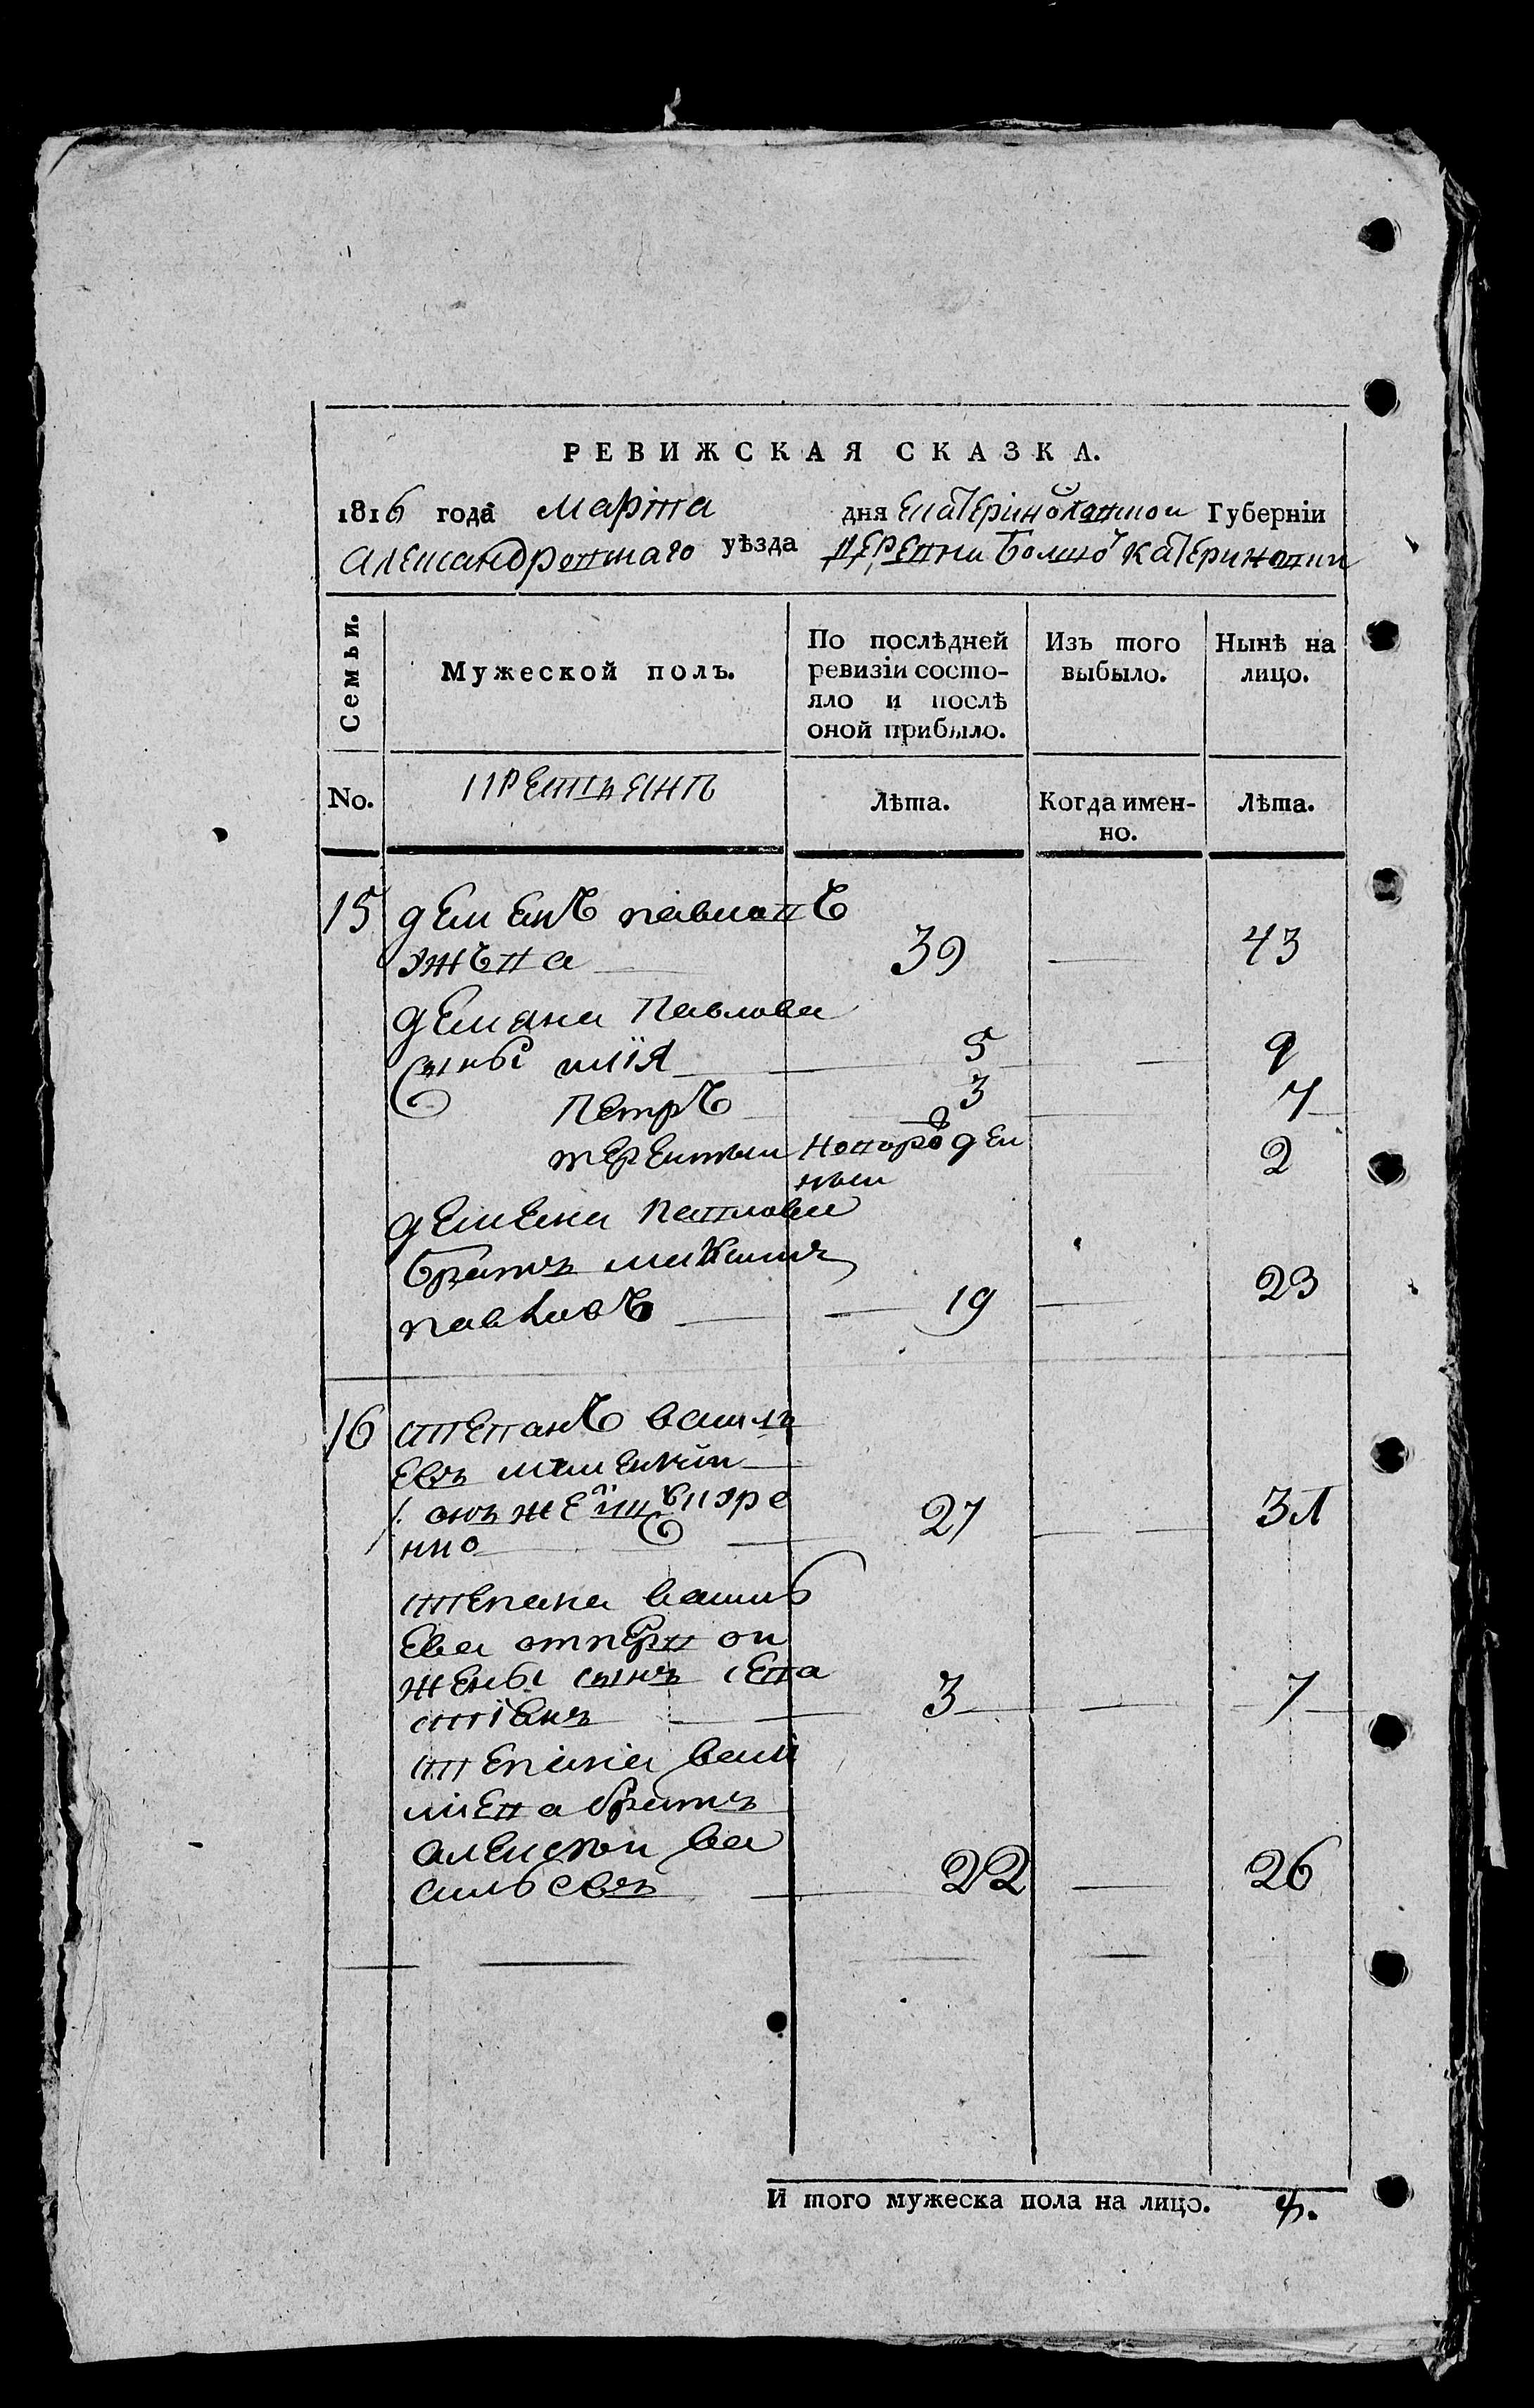 РЕВИЖСКАЯ СКАЗКА.
1816 года марта дня Екатеринославской Губерніи
александровскаго уѣзда деревни Болшо катериновки
Семьи.
Мужеской полъ.
По послѣдней ревизіи состояло и послѣ оной прибыло.
Изъ того выбыло.
Нынѣ на лицо.
No.
крестьянъ
Лѣта.
Когда именно.
Лѣта.
15 демянъ павловъ
39 43
демяна Павлова
сыны илїя 5 9
Петръ 3 7
терентыи новорожден
ныи 2
демяна павлова
братъ максимъ
павловъ 19 23
16 степанъ василь
евъ
онъ же
27 31
степана василь
ева от первои
жены сынъ сева
стіянъ 3 7
степана васи
лиева братъ
алексеи ва
сильевъ 22 26
И того мужеска пола на лицо.